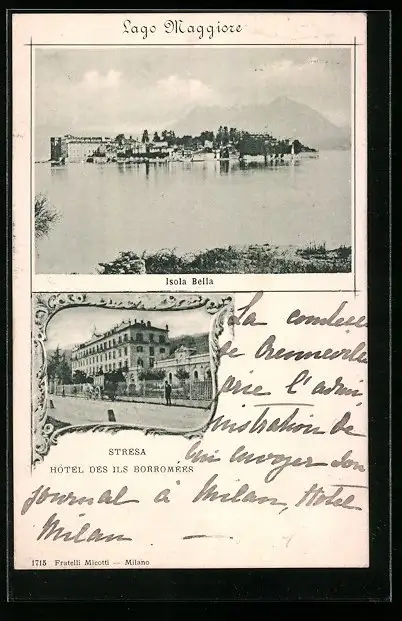 Lago Maggiore
Isola Bella
STRESA
HÔTEL DES ILS BORROMÉES
La comtesse
de Crenneville
prie l'admi
nistration de
lui envoyer son
journal à Milan, Hotel
Milan —
1715 Fratelli Micotti — Milano